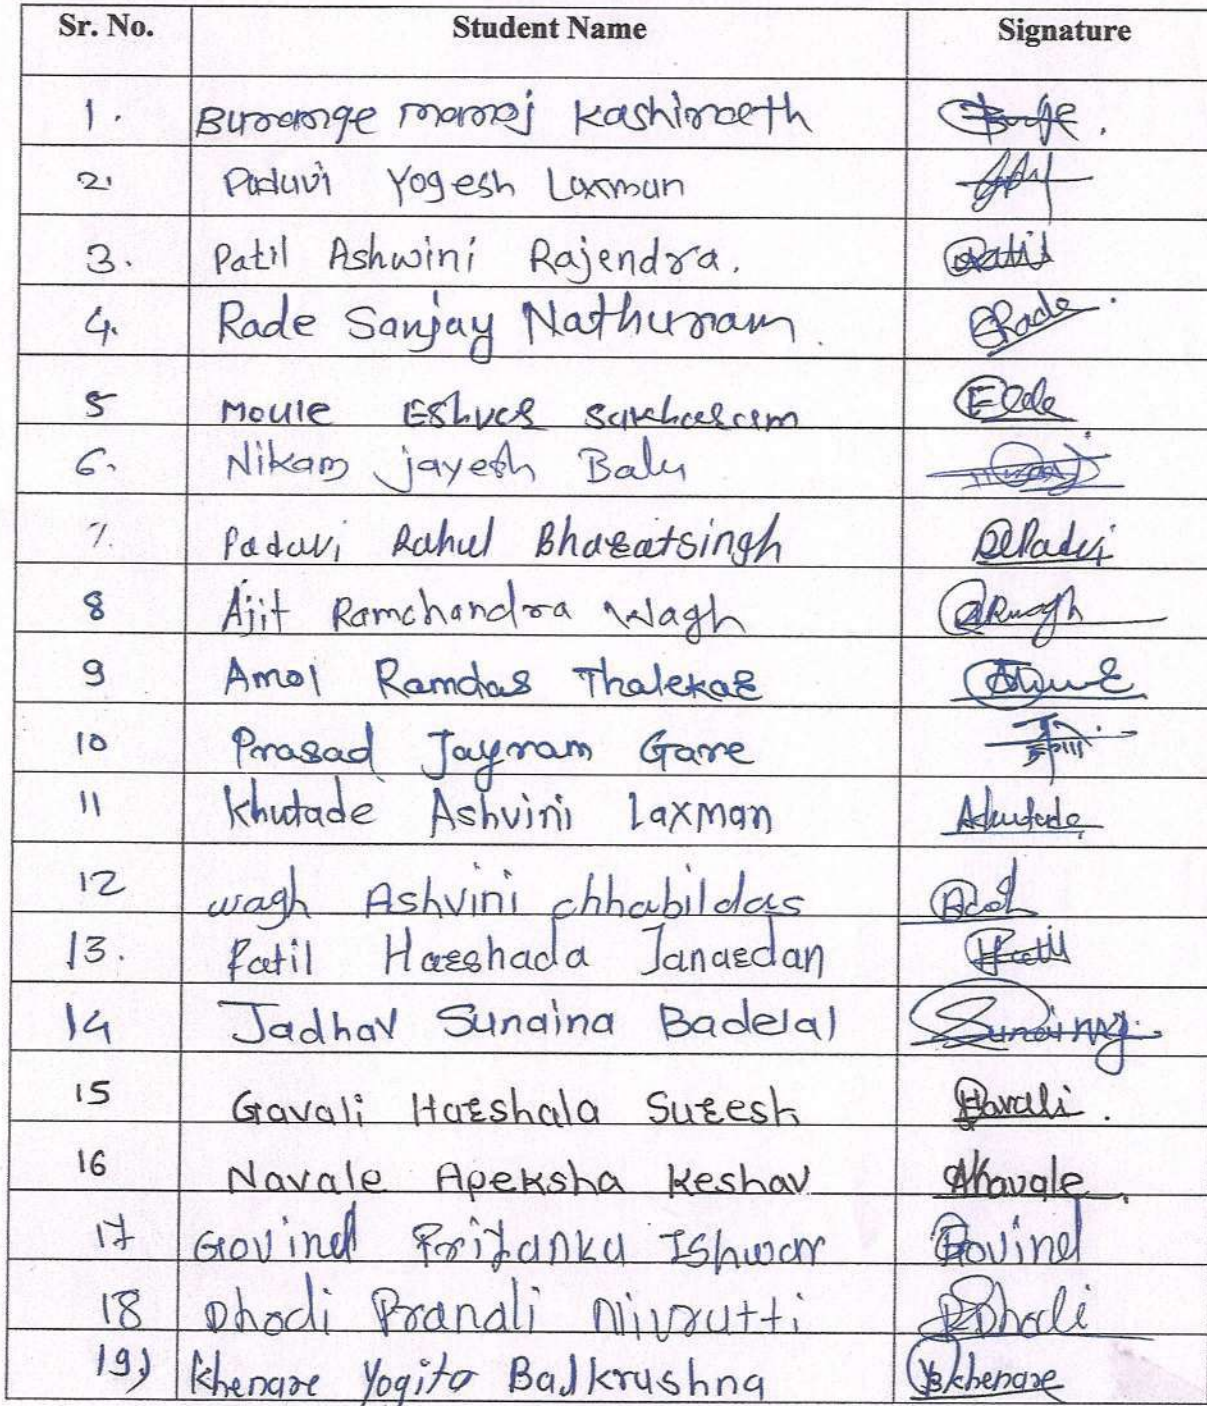 Sr. No. Student Name Signature
1. Burange manoj Kashinath
2. Paduvi Yogesh Laxman
3. Patil Ashwini Rajendra. Patil
4. Rade Sanjay Nathuram. Rade.
5 Moule Eshver Sakharam
6. Nikam jayesh Balu
7. Paduvi Rahul Bharatsingh RBPadvi
8 Ajit Ramchandra Wagh ARwagh
9 Amol Ramdas Thalekar
10 Prasad Jayram Gare
11 Khutade Ashvini Laxman Akutade
12 wagh Ashvini chhabildas
13. Patil Harshada Janardan Patil
14 Jadhav Sunaina Badelal Sunaina
15 Gavali Harshala Suresh Gavali.
16 Navale Apeksha Keshav ANavale.
17 Govind Priyanka Ishwar Govind
18 Dhodi Pranali Nivrutti PDhodi
19) Khenare Yogita Balkrushna YBkhenare